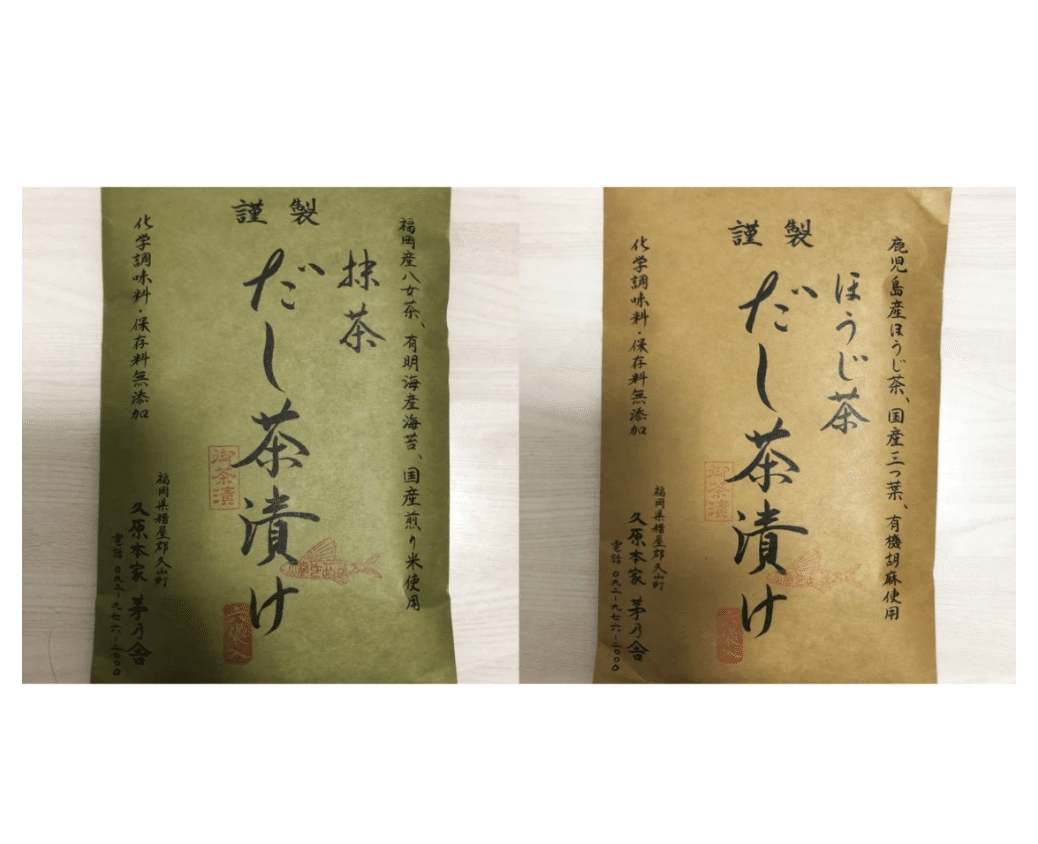 謹製
福岡産八女茶、有明海産海苔、国産煎り米使用
抹茶
だし茶漬け
御茶漬
化学調味料・保存料無添加
福岡県糟屋郡久山町
久原本家 茅乃舎
電話 〇九二-九七六-二〇〇〇
謹製
鹿児島産ほうじ茶、国産三つ葉、有機胡麻使用
ほうじ茶
だし茶漬け
御茶漬
化学調味料・保存料無添加
福岡県糟屋郡久山町
久原本家 茅乃舎
電話 〇九二-九七六-二〇〇〇